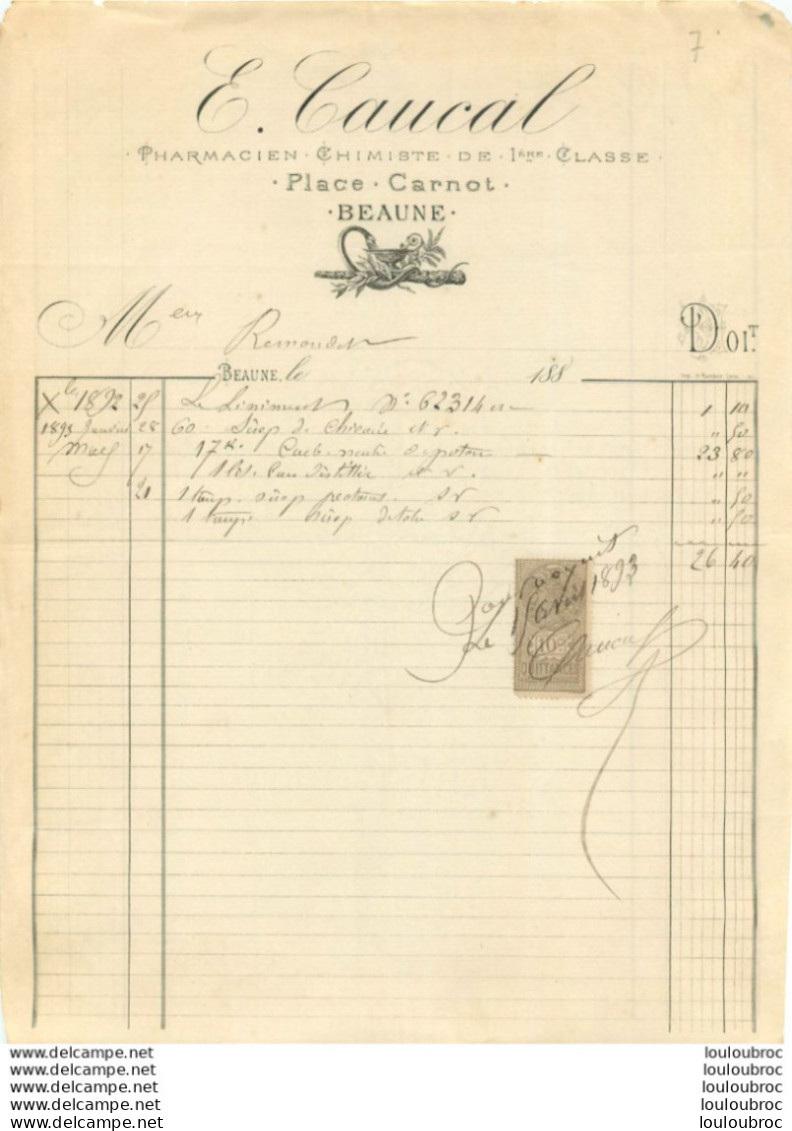 7
E. Caucal
PHARMACIEN · CHIMISTE · DE · 1ÈRE · CLASSE ·
· Place · Carnot ·
· BEAUNE ·
M Remondet DOIT.
BEAUNE, le 188
Xbre 1892 25 Le Liniment Nº 62314 1 10
1893 Janvier 28 60 Sirop de Chicorée et r. " 50
Mars 17 17 K. Carb. neutre de potasse 23 80
1 Eau distillée " "
21 1 Sirop sr " 50
1 sirop de tolu sr " 50
26 40
Pour acquit
Le Avril 1893
10c
QUITTANCES
Caucal
www.delcampe.net louloubroc
www.delcampe.net louloubroc
www.delcampe.net louloubroc
www.delcampe.net louloubroc
www.delcampe.net louloubroc